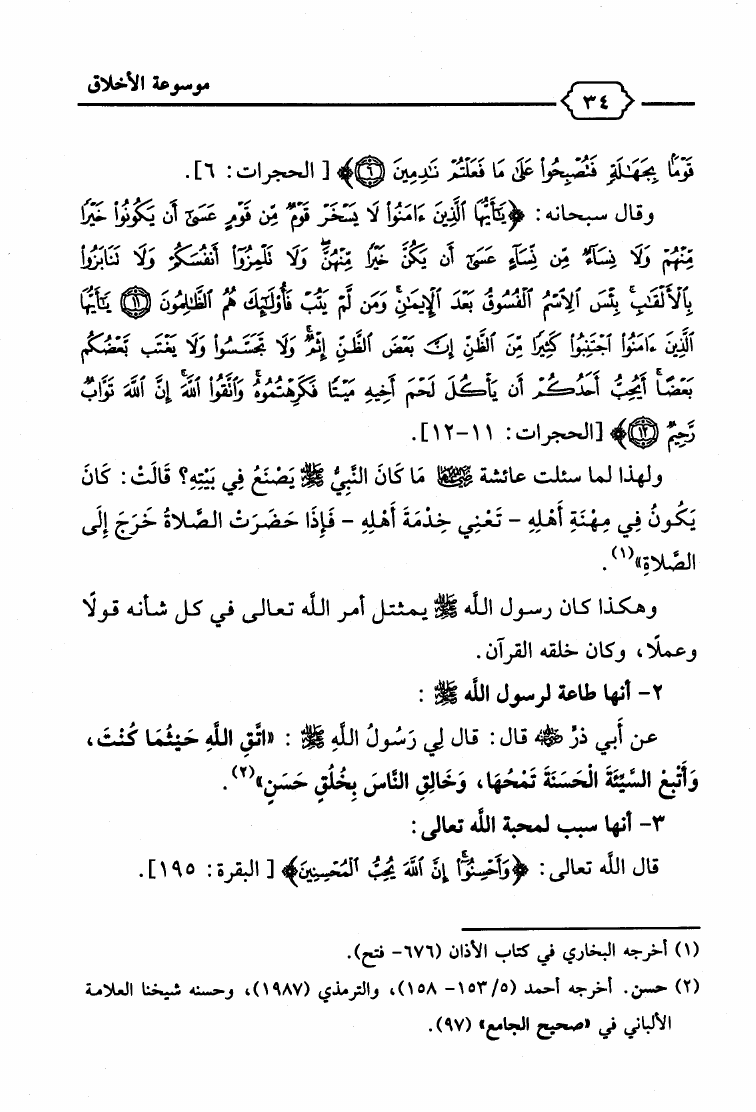 موسوعة الأخلاق
٣٤
قَوْمًۢا بِجَهَٰلَةٍ فَتُصْبِحُوا۟ عَلَىٰ مَا فَعَلْتُمْ نَٰدِمِينَ ﴿٦﴾﴾ [ الحجرات: ٦].
وقال سبحانه: ﴿يَٰٓأَيُّهَا ٱلَّذِينَ ءَامَنُوا۟ لَا يَسْخَرْ قَوْمٌ مِّن قَوْمٍ عَسَىٰٓ أَن يَكُونُوا۟ خَيْرًا
مِّنْهُمْ وَلَا نِسَآءٌ مِّن نِّسَآءٍ عَسَىٰٓ أَن يَكُنَّ خَيْرًا مِّنْهُنَّ ۖ وَلَا تَلْمِزُوٓا۟ أَنفُسَكُمْ وَلَا تَنَابَزُوا۟
بِٱلْأَلْقَٰبِ ۖ بِئْسَ ٱلِٱسْمُ ٱلْفُسُوقُ بَعْدَ ٱلْإِيمَٰنِ ۚ وَمَن لَّمْ يَتُبْ فَأُو۟لَٰٓئِكَ هُمُ ٱلظَّٰلِمُونَ ﴿١١﴾ يَٰٓأَيُّهَا
ٱلَّذِينَ ءَامَنُوا۟ ٱجْتَنِبُوا۟ كَثِيرًا مِّنَ ٱلظَّنِّ إِنَّ بَعْضَ ٱلظَّنِّ إِثْمٌ ۖ وَلَا تَجَسَّسُوا۟ وَلَا يَغْتَب بَّعْضُكُم
بَعْضًا ۚ أَيُحِبُّ أَحَدُكُمْ أَن يَأْكُلَ لَحْمَ أَخِيهِ مَيْتًا فَكَرِهْتُمُوهُ ۚ وَٱتَّقُوا۟ ٱللَّهَ ۚ إِنَّ ٱللَّهَ تَوَّابٌ
رَّحِيمٌ ﴿١٢﴾﴾ [الحجرات: ١١-١٢].
ولهذا لما سئلت عائشة رضي الله عنها مَا كَانَ النَّبِيُّ ﷺ يَصْنَعُ فِي بَيْتِهِ؟ قَالَتْ: كَانَ
يَكُونُ فِي مِهْنَةِ أَهْلِهِ – تَعْنِي خِدْمَةَ أَهْلِهِ – فَإِذَا حَضَرَتْ الصَّلاةُ خَرَجَ إِلَى
الصَّلاةِ»(١).
وهكذا كان رسول الله ﷺ يمثتل أمر الله تعالى في كل شأنه قولًا
وعملًا، وكان خلقه القرآن.
٢- أنها طاعة لرسول الله ﷺ :
عن أَبي ذرٍّ رضي الله عنه قال: قال لِي رَسُولُ اللهِ ﷺ : «اتَّقِ اللَّهِ حَيْثُمَا كُنْتَ،
وَأَتْبِعْ السَّيِّئَةَ الْحَسَنَةَ تَمْحُهَا، وَخَالِقِ النَّاسَ بِخُلُقٍ حَسَنٍ»(٢).
٣- أنها سبب لمحبة الله تعالى:
قال الله تعالى: ﴿وَأَحْسِنُوٓا۟ ۛ إِنَّ ٱللَّهَ يُحِبُّ ٱلْمُحْسِنِينَ﴾ [ البقرة: ١٩٥].
(١) أخرجه البخاري في كتاب الأذان (٦٧٦- فتح).
(٢) حسن. أخرجه أحمد (٥/ ١٥٣- ١٥٨)، والترمذي (١٩٨٧)، وحسنه شيخنا العلامة
الألباني في «صحيح الجامع» (٩٧).